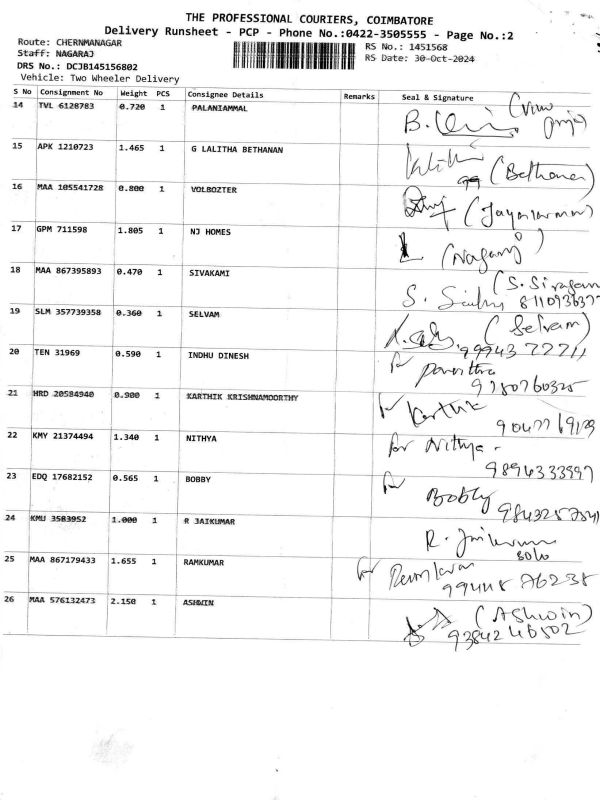 THE PROFESSIONAL COURIERS, COIMBATORE
Delivery Runsheet - PCP - Phone No.:0422-3505555 - Page No.:2
Route: CHERNMANAGAR
RS No.: 1451568
Staff: NAGARAJ
RS Date: 30-Oct-2024
DRS No.: DCJB145156802
Vehicle: Two Wheeler Delivery
S No Consignment No Weight PCS Consignee Details Remarks Seal & Signature
14 TVL 6128783 0.720 1 PALANIAMMAL
15 APK 1210723 1.465 1 G LALITHA BETHANAN
16 MAA 105541728 0.800 1 VOLBOZTER
17 GPM 711598 1.805 1 NJ HOMES (Nagaraj)
18 MAA 867395893 0.470 1 SIVAKAMI
19 SLM 357739358 0.360 1 SELVAM (Selvam)
20 TEN 31969 0.590 1 INDHU DINESH for Pavithra
9750760325
21 HRD 20584940 0.900 1 KARTHIK KRISHNAMOORTHY for Karthik
22 KMY 21374494 1.340 1 NITHYA for Nithya -
9894333997
23 EDQ 17682152 0.565 1 BOBBY for Bobby
24 KMU 3583952 1.000 1 R JAIKUMAR
25 MAA 867179433 1.655 1 RAMKUMAR for
99448 76238
26 MAA 576132473 2.150 1 ASHWIN (Ashwin)
9384246502